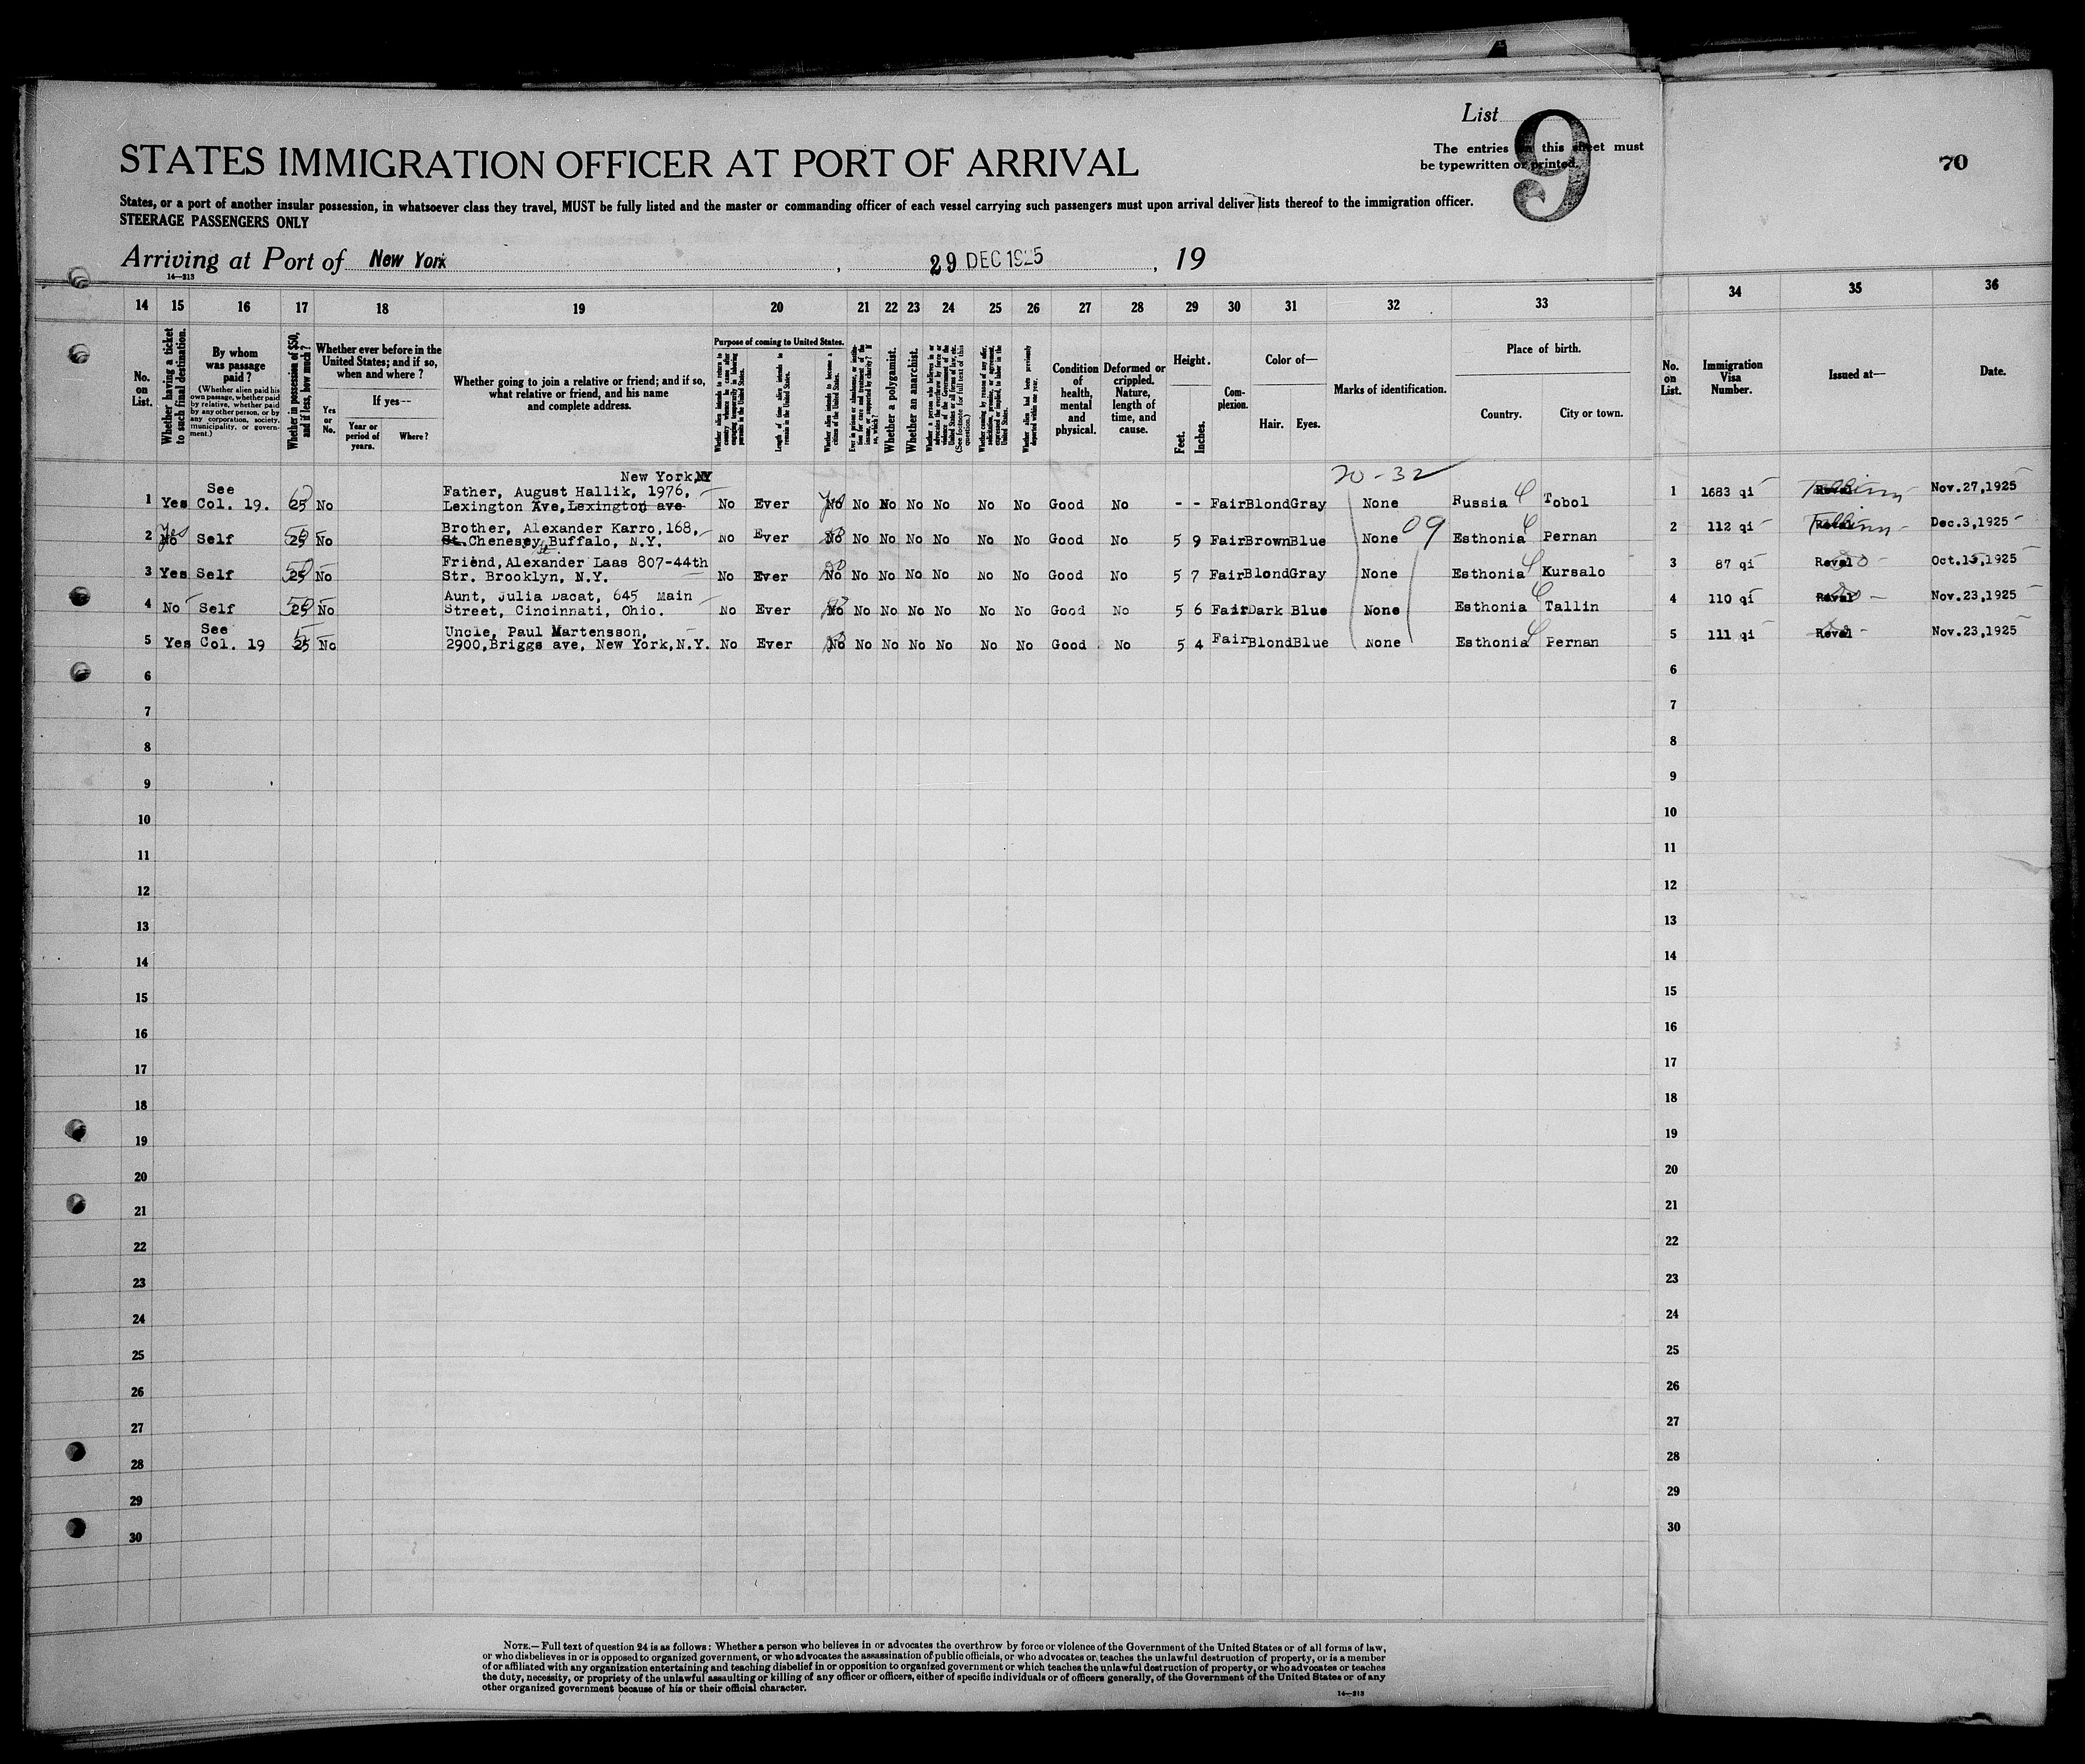 List 9
The entries on this sheet must
be typewritten or printed.
70
STATES IMMIGRATION OFFICER AT PORT OF ARRIVAL
States, or a port of another insular possession, in whatsoever class they travel, MUST be fully listed and the master or commanding officer of each vessel carrying such passengers must upon arrival deliver lists thereof to the immigration officer.
STEERAGE PASSENGERS ONLY
Arriving at Port of New York, 29 DEC 1925, 19
14—213
14 15 16 17 18 19 20 21 22 23 24 25 26 27 28 29 30 31 32 33 34 35 36
No. on List.
Whether having a ticket to such final destination.
By whom was passage paid?
(Whether alien paid his own passage, whether paid by relative, whether paid by any other person, or by any corporation, society, municipality, or government.)
Whether in possession of $50, and if less, how much?
Whether ever before in the United States; and if so, when and where?
Yes or No.
If yes--
Year or period of years.
Where?
Whether going to join a relative or friend; and if so, what relative or friend, and his name and complete address.
Purpose of coming to United States.
Whether alien intends to return to country whence he came after engaging temporarily in laboring pursuits in the United States.
Length of time alien intends to remain in the United States.
Whether alien intends to become a citizen of the United States.
Whether a polygamist.
Whether an anarchist.
(See footnote for full text of this question.)
Whether alien had been previously deported within one year.
Condition of health, mental and physical.
Deformed or crippled. Nature, length of time, and cause.
Height.
Feet.
Inches.
Complexion.
Color of—
Hair.
Eyes.
Marks of identification.
Place of birth.
Country.
City or town.
No. on List.
Immigration Visa Number.
Issued at—
Date.
20-32
New York,NY
1 Yes See Col. 19. 25 No Father, August Hallik, 1976, Lexington Ave, Lexington ave No Ever No Yes No No No No No No Good No - - Fair Blond Gray None Russia Tobol 1 1683 qi Reval Tallinn Nov.27,1925
2 No Yes Self 25 50 No Brother, Alexander Karro, 168, St. Chenesey St. Buffalo, N.Y. No Ever No No No No No No No Good No 5 9 Fair Brown Blue None 09 Esthonia Pernan 2 112 qi Reval Tallinn Dec.3,1925
3 Yes Self 25 50 No Friend, Alexander Laas 807-44th Str. Brooklyn, N.Y. No Ever No No No No No No No Good No 5 7 Fair Blond Gray None Esthonia Kursalo 3 87 qi Reval Oct.13,1925
4 No Self 25 50 No Aunt, Julia Dacat, 645 Main Street, Cincinnati, Ohio. No Ever No No No No No No No Good No 5 6 Fair Dark Blue None Esthonia Tallin 4 110 qi Reval Nov.23,1925
5 Yes See Col. 19 25 No Uncle, Paul Martensson, 2900,Briggs ave, New York,N.Y. No Ever No No No No No No No Good No 5 4 Fair Blond Blue None Esthonia Pernan 5 111 qi Reval Nov.23,1925
6 6
7 7
8 8
9 9
10 10
11 11
12 12
13 13
14 14
15 15
16 16
17 17
18 18
19 19
20 20
21 21
22 22
23 23
24 24
25 25
26 26
27 27
28 28
29 29
30 30
NOTE.—Full text of question 24 is as follows: Whether a person who believes in or advocates the overthrow by force or violence of the Government of the United States or of all forms of law,
or who disbelieves in or is opposed to organized government, or who advocates the assassination of public officials, or who advocates or teaches the unlawful destruction of property, or is a member
of or affiliated with any organization entertaining and teaching disbelief in or opposition to organized government or which teaches the unlawful destruction of property, or who advocates or teaches
the duty, necessity, or propriety of the unlawful assaulting or killing of any officer or officers, either of specific individuals or of officers generally, of the Government of the United States or of any
other organized government because of his or their official character.
14—213